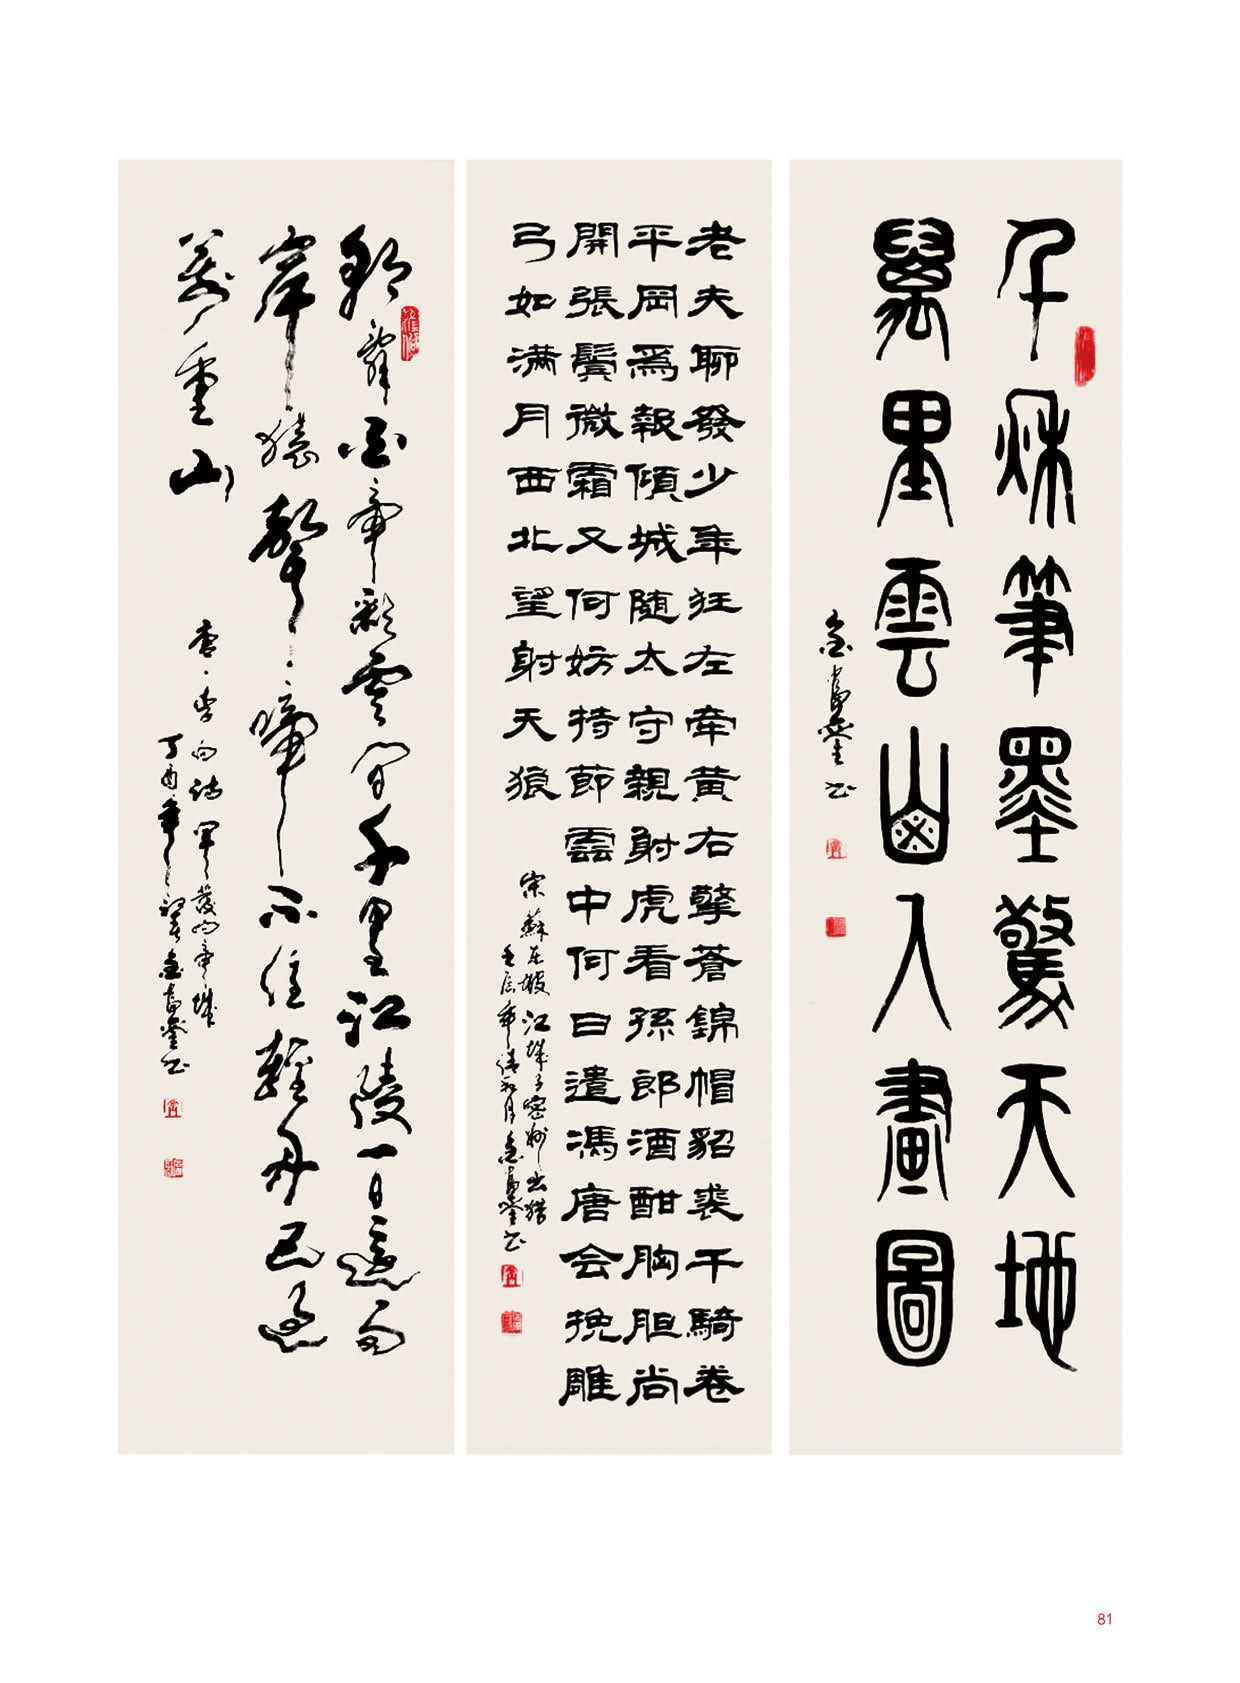 千秋筆墨驚天地
萬里雲山入畫圖
金富書
老夫聊發少年狂左牽黃右擎蒼錦帽貂裘千騎卷
平岡爲報傾城随太守親射虎看孫郎酒酣胸胆尚
開張鬢微霜又何妨持節雲中何日遣馮唐会挽雕
弓如满月西北望射天狼
宋蘇東坡江城子密州出猎
壬辰年清和月金富書
朝辭白帝彩雲間千里江陵一日還两
岸猿聲啼不住輕舟已過
萬重山
唐·李白詩早發白帝城
丁酉年之夏金富書
81